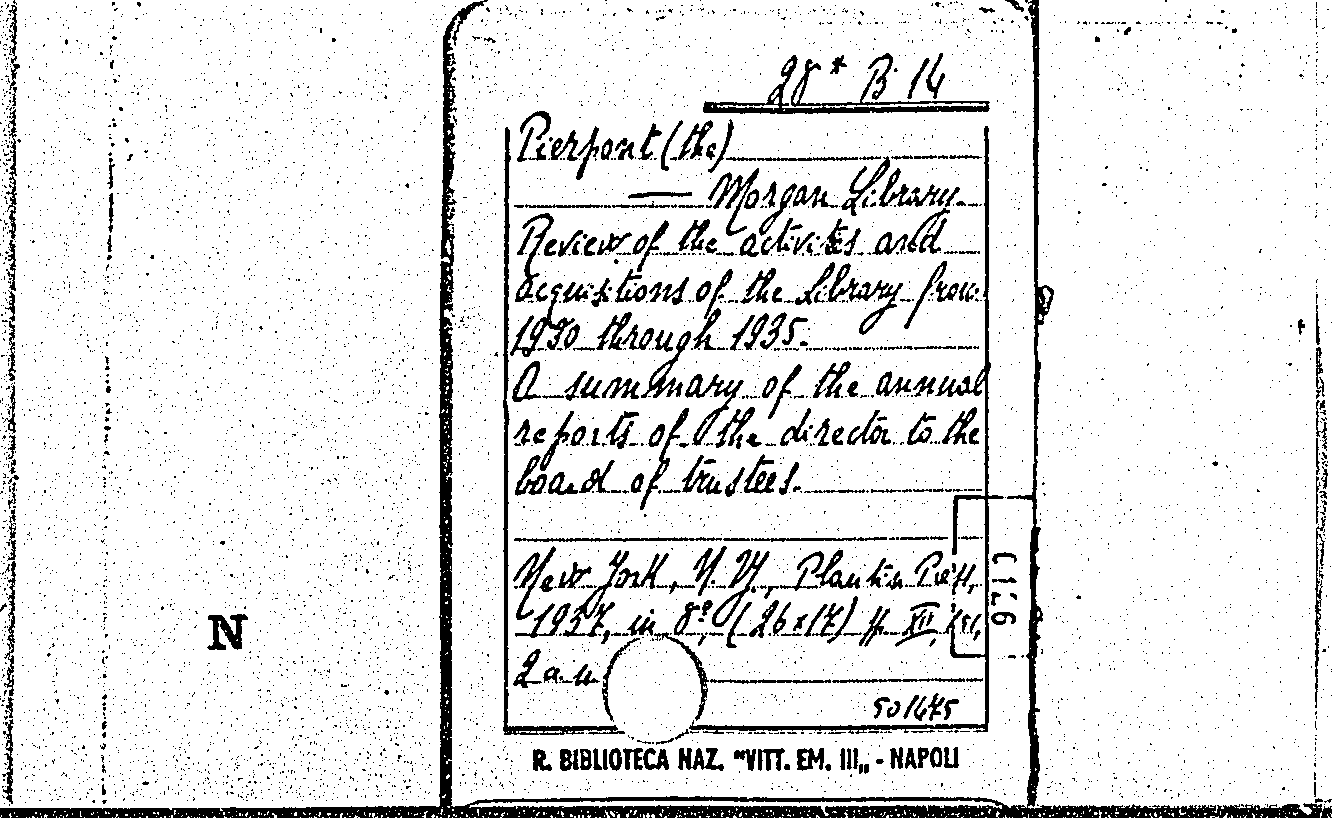 28* B 14
Pierpont (the)
— Morgan Library.
Review of the activites and
acquisitions of the Library from
1930 through 1935.
A summary of the annual
reports of the director to the
board of trustees.
New York, N. Y., Plantin Press,
1937, in 8º, (26x17) pp. XII,
2 a. u.
501675
R. BIBLIOTECA NAZ. "VITT. EM. III„ - NAPOLI
N